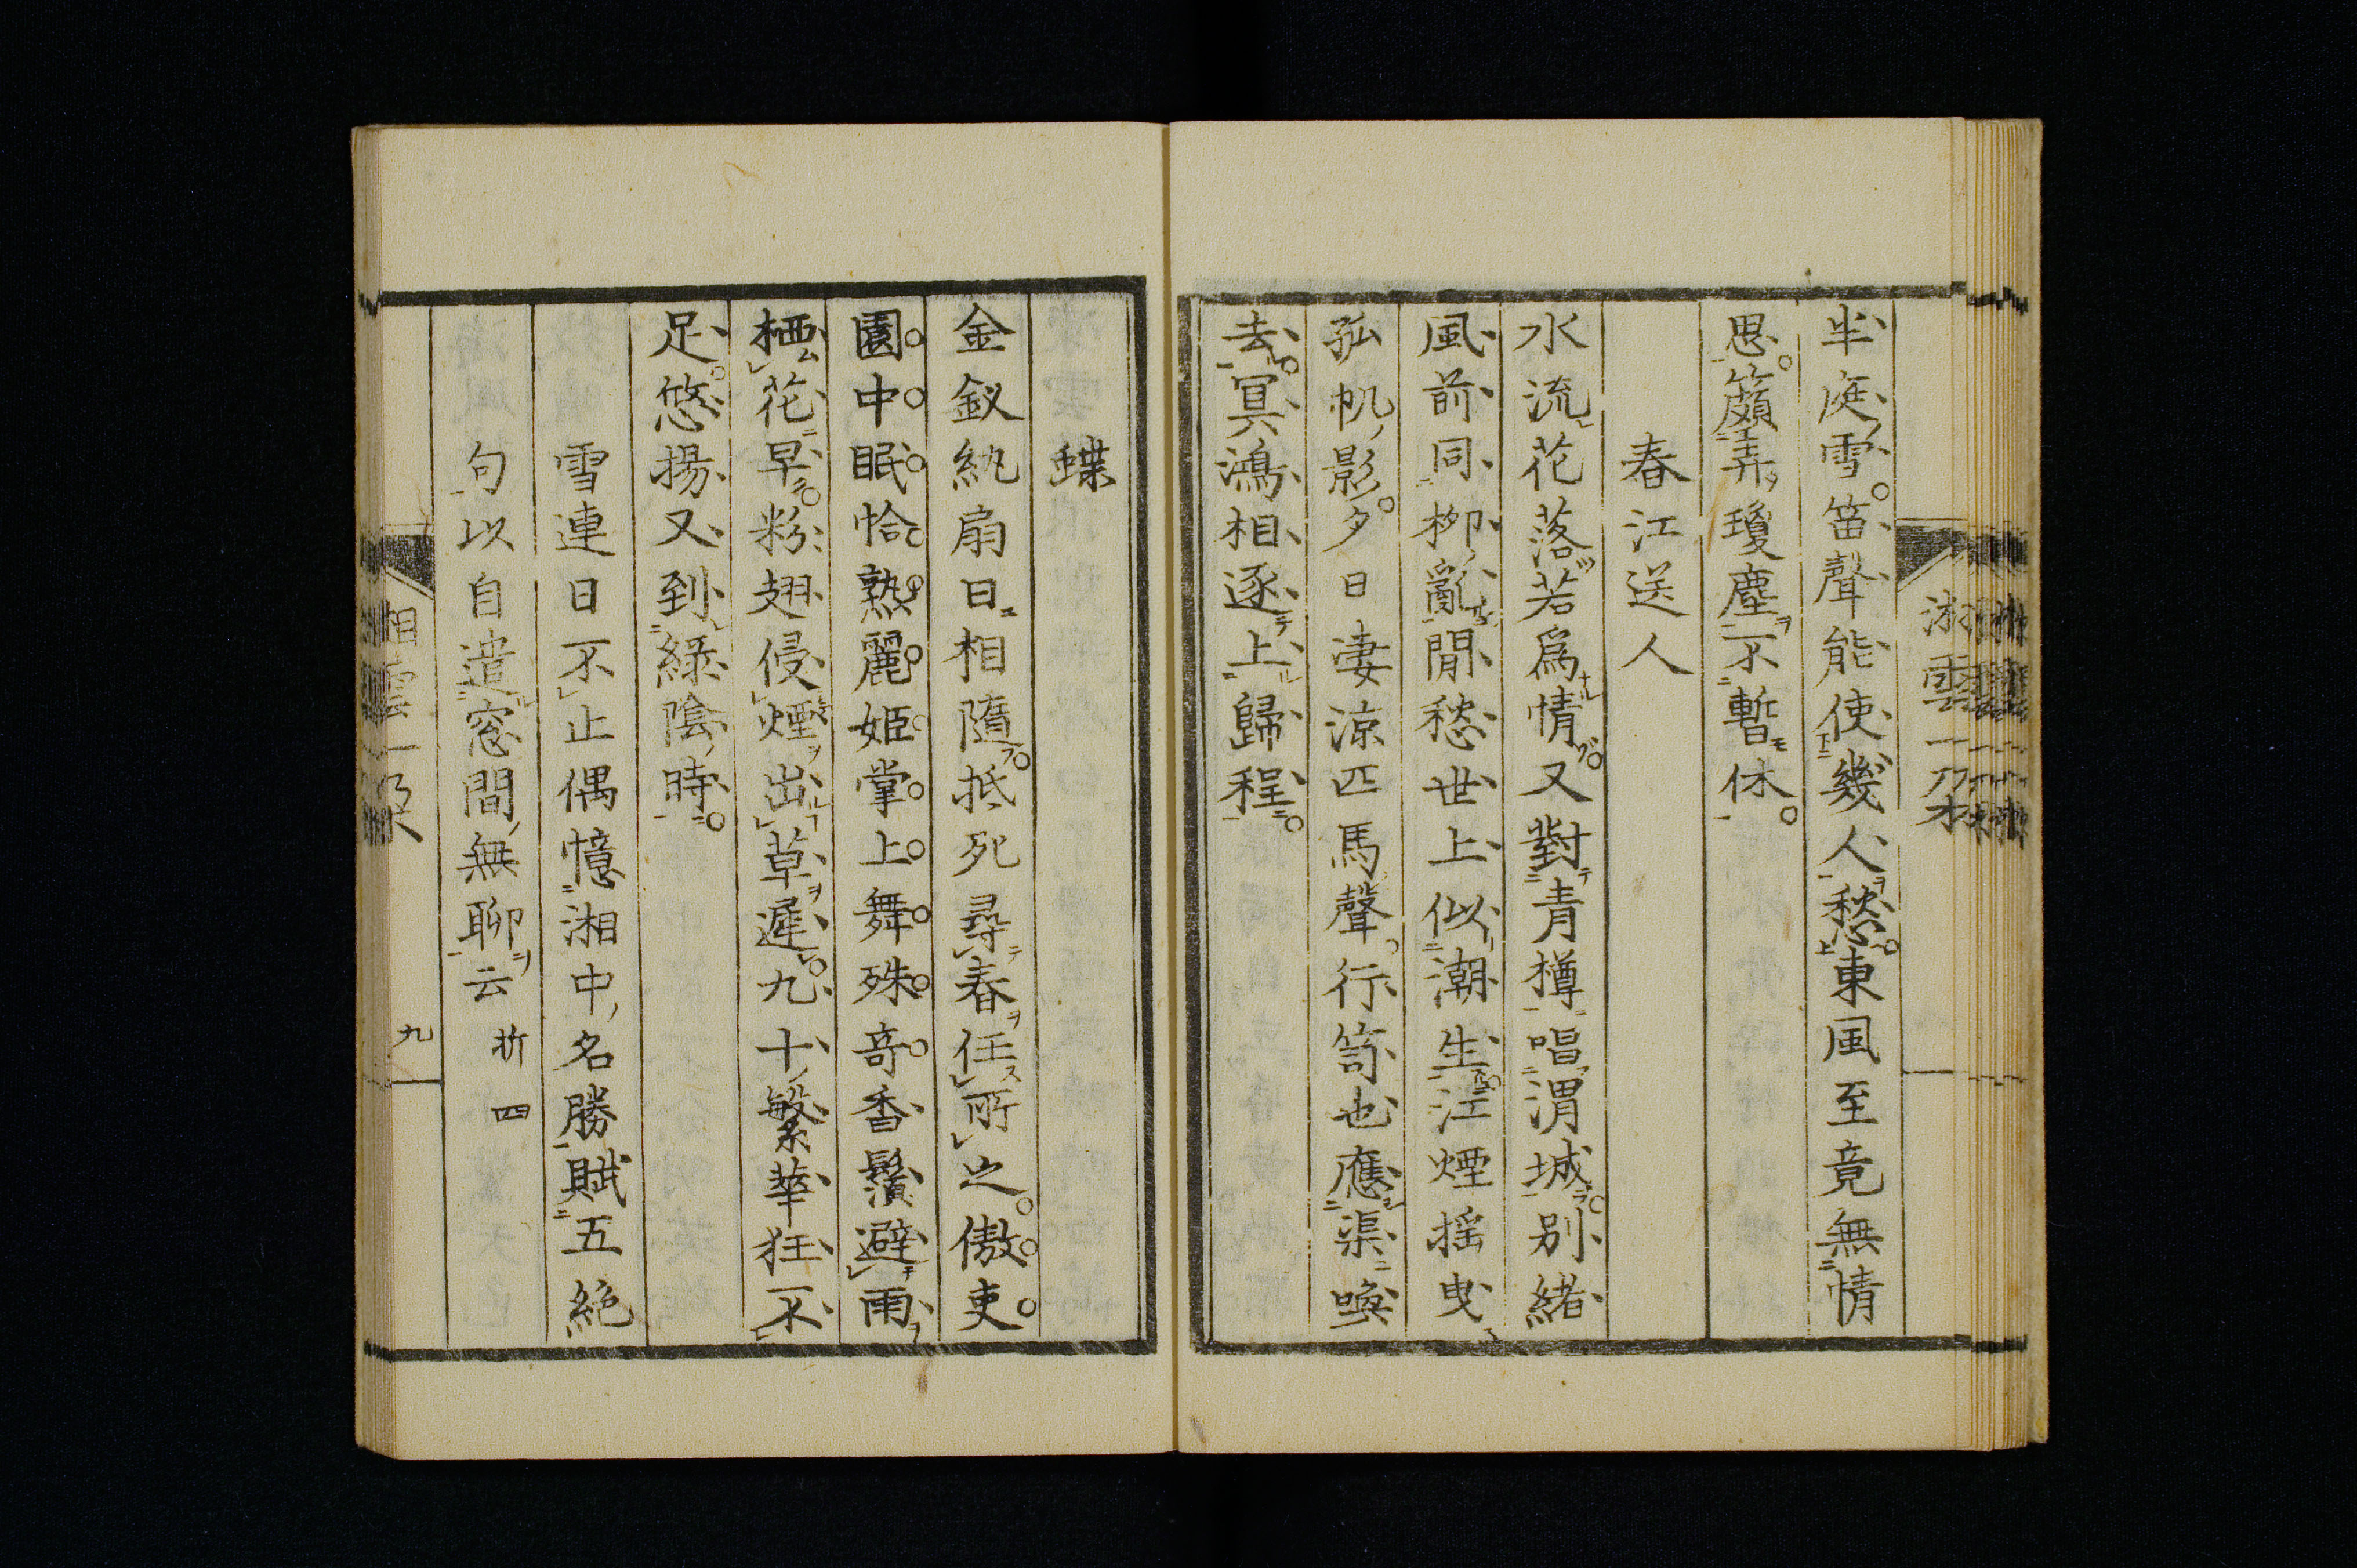 半庭雪笛聲能使幾人愁東風至竟無情
思簸弄瓊塵不暫休
春江送人
水流花落若爲情又對青樽唱渭城別緒
風前同柳亂閒愁世上似潮生江煙搖曳
孤帆影夕日凄涼匹馬聲行笴也應渠喚
去冥鴻相逐上歸程
蝶
金釵紈扇日相隨抵死尋春任所之傲吏
園中眠恰熟麗姬掌上舞殊奇香鬚避雨
栖花早粉翅侵煙出草遲九十繁華狂不
足悠揚又到綠陰時
雪連日不止偶憶湘中名勝賦五絕
句以自遣窓間無聊云 折四
湘雲一朶
九